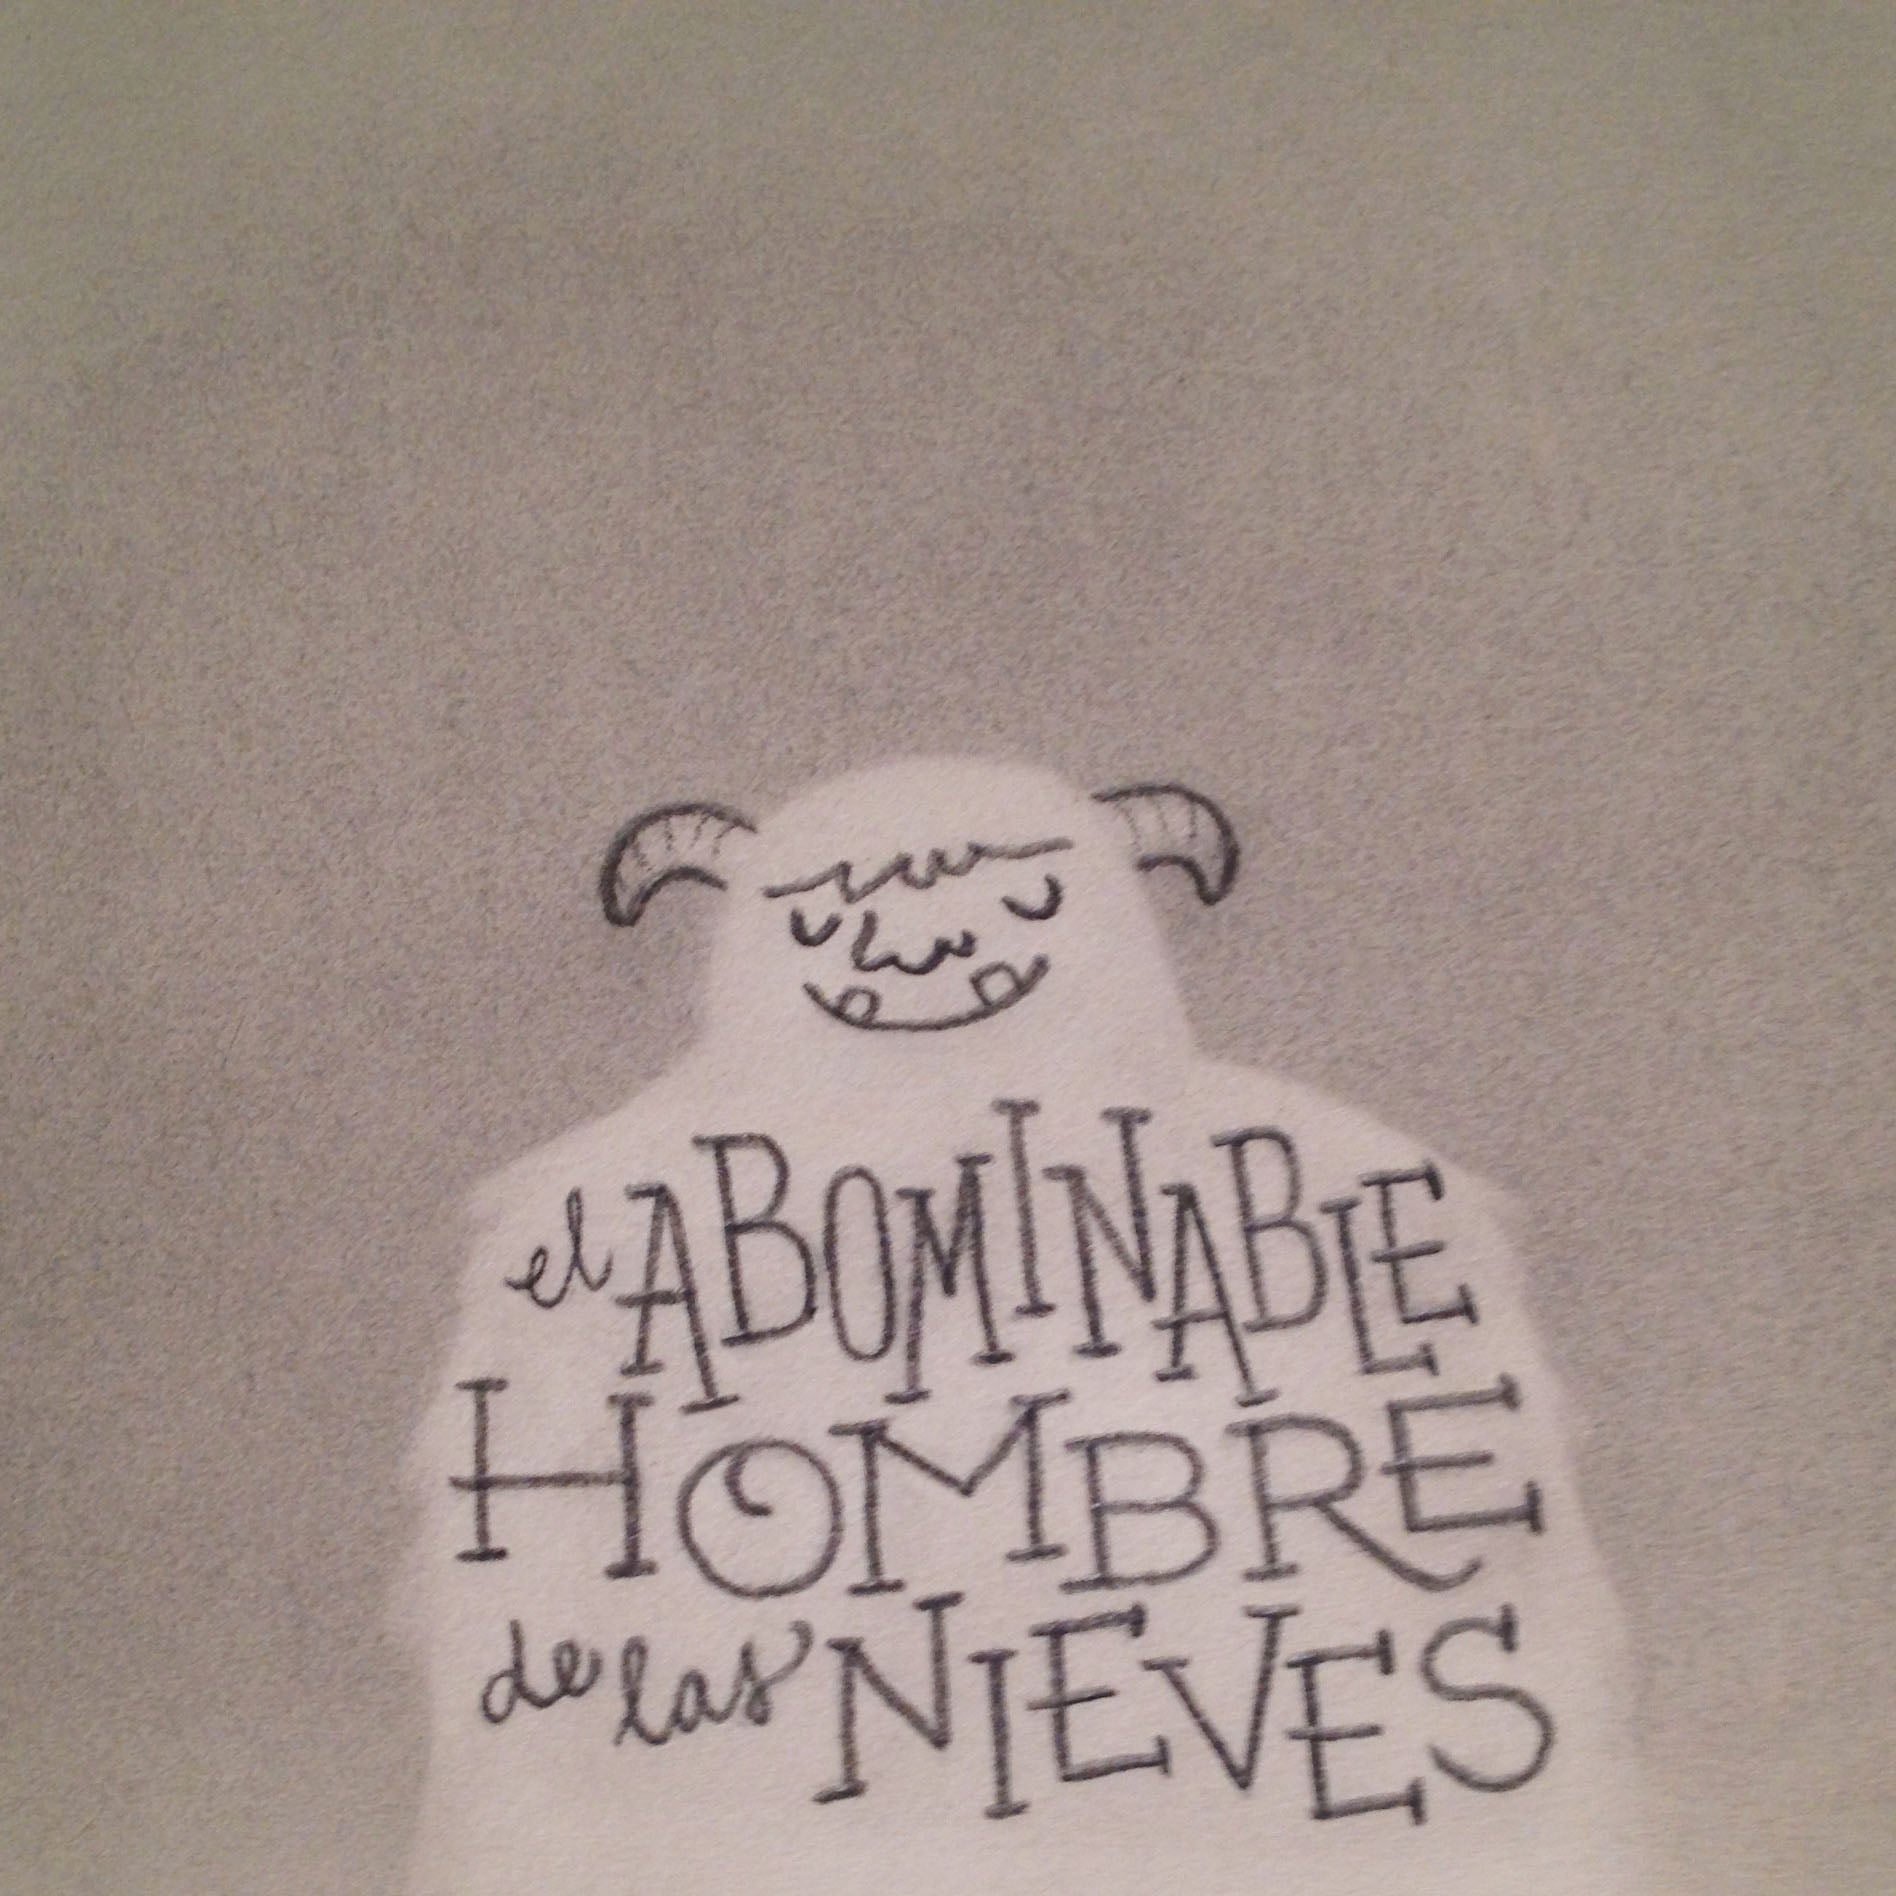 el ABOMINABLE
HOMBRE
de las NIEVES